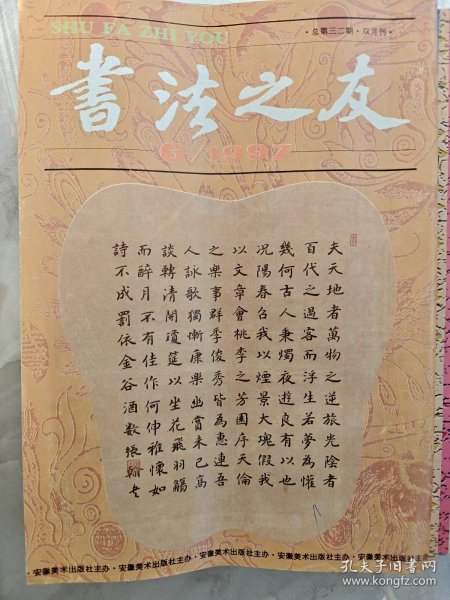 SHU FA ZHI YOU
·总第三二期·双月刊·
書法之友
6/1997
夫天地者萬物之逆旅光陰者
百代之過客而浮生若夢為懽
幾何古人秉燭夜遊良有以也
况陽春召我以煙景大塊假我
以文章會桃李之芳園序天倫
之樂事群季俊秀皆為惠連吾
人詠歌獨慚康樂幽賞未已高
談轉清開瓊筵以坐花飛羽觴
而醉月不有佳作何伸雅懷如
詩不成罰依金谷酒數張翰
·安徽美术出版社主办·安徽美术出版社主办·安徽美术出版社主办·安徽美术出版社主办·安徽美术出版社主办
孔夫子旧书网
www.kongfz.com